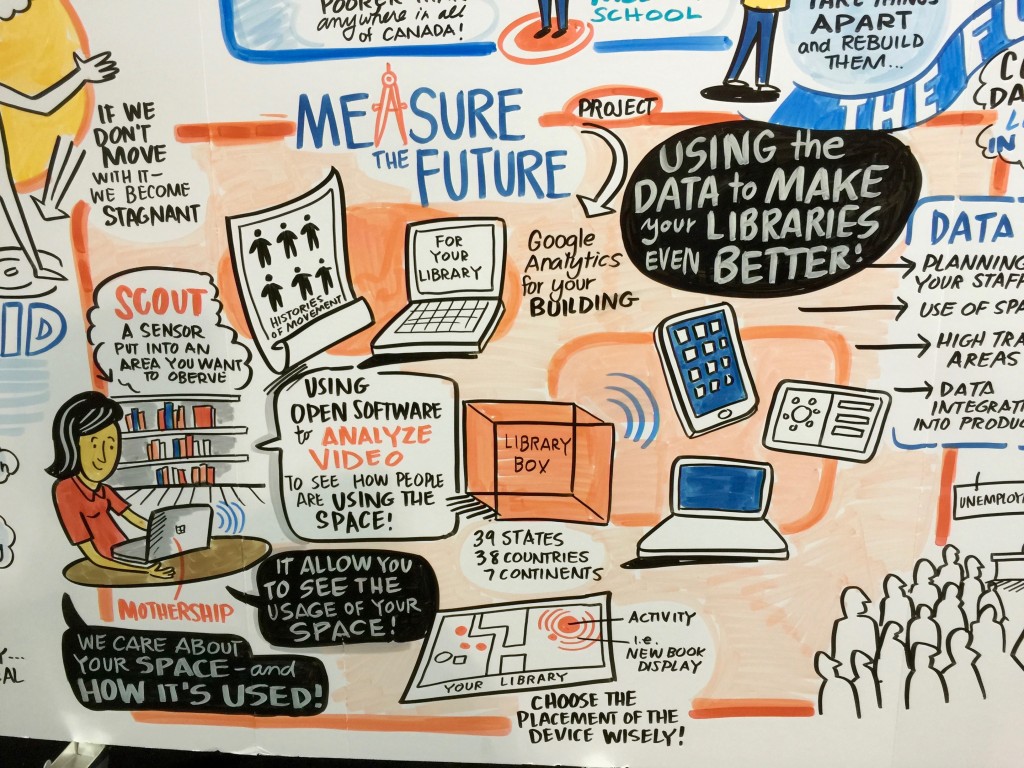 anywhere in all
of CANADA!
SCHOOL
TAKE THINGS
APART
and REBUILD
THEM...
THE
IF WE
DON'T
MOVE
WITH IT-
WE BECOME
STAGNANT
MEASURE
THE FUTURE
PROJECT
USING the
DATA to MAKE
your LIBRARIES
EVEN BETTER!
Google
Analytics
for your
BUILDING
FOR
YOUR
LIBRARY
HISTORIES
OF MOVEMENT!
SCOUT
A SENSOR
PUT INTO AN
AREA YOU WANT
TO OBERVE
USING
OPEN SOFTWARE
to ANALYZE
VIDEO
TO SEE HOW PEOPLE
ARE USING THE
SPACE!
LIBRARY
BOX
39 STATES
38 COUNTRIES
7 CONTINENTS
DATA
PLANNING
YOUR STAFF
USE OF SPA
HIGH TRA
AREAS
DATA
INTEGRAT
INTO PRODUC
UNEMPLOY
MOTHERSHIP
IT ALLOW YOU
TO SEE THE
USAGE OF YOUR
SPACE!
WE CARE ABOUT
YOUR SPACE - and
HOW IT'S USED!
YOUR LIBRARY
ACTIVITY
i.e.
NEW BOOK
DISPLAY
CHOOSE THE
PLACEMENT OF THE
DEVICE WISELY!